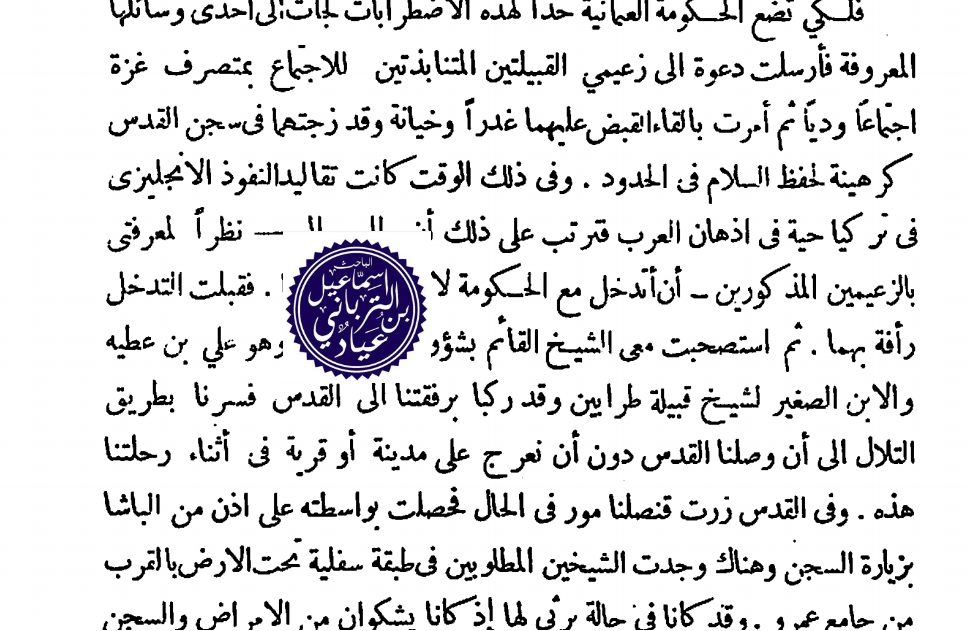 فلكي تضع الحكومة العثمانية حداً لهذه الاضطرابات لجأت الى احدى وسائلها
المعروفة فأرسلت دعوة الى زعيمي القبيلتين المتنابذتين للاجتماع بمتصرف غزة
اجتماعاً ودياً ثم أمرت بالقاء القبض عليهما غدراً وخيانة وقد زجتهما فى سجن القدس
كرهينة لحفظ السلام فى الحدود . وفى ذلك الوقت كانت تقاليد النفوذ الانجليزى
فى تركيا حية فى اذهان العرب فترتب على ذلك — نظراً لمعرفتى
بالزعيمين المذكورين – أن أتدخل مع الحكومة . فقبلت التدخل
رأفة بهما . ثم استصحبت معى الشيخ القائم وهو علي بن عطيه
والابن الصغير لشيخ قبيلة طرابين وقد ركبا برفقتنا الى القدس فسرنا بطريق
التلال الى أن وصلنا القدس دون أن نعرج على مدينة أو قرية فى أثناء رحلتنا
هذه . وفى القدس زرت قنصلنا مور فى الحال فحصلت بواسطته على اذن من الباشا
بزيارة السجن وهناك وجدت الشيخين المطلوبين فى طبقة سفلية تحت الارض بالقرب
من جامع عمرو . وقد كانا فى حالة يرثى لها إذ كانا يشكوان من الامراض والسجن
الباحث
إسماعيل
بن عياد
الترباني